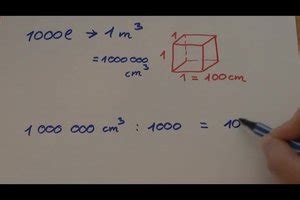 1000l → 1 m³
= 1000 000 cm³
1
1
1 = 100 cm
1 000 000 cm³ : 1000 = 10